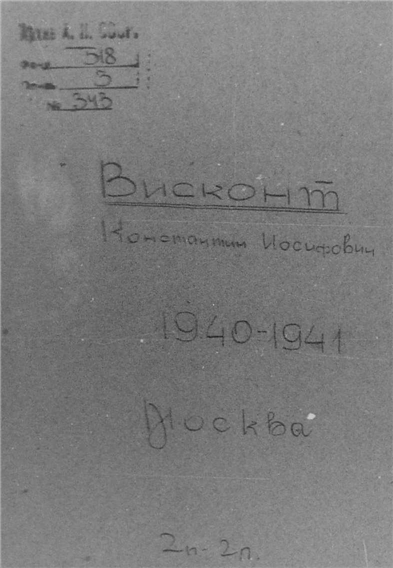 А. Н. СССР.
фонд 518
опись 3
№ 343
Висконт
Константин Иосифович
1940-1941
Москва
2п-2л.